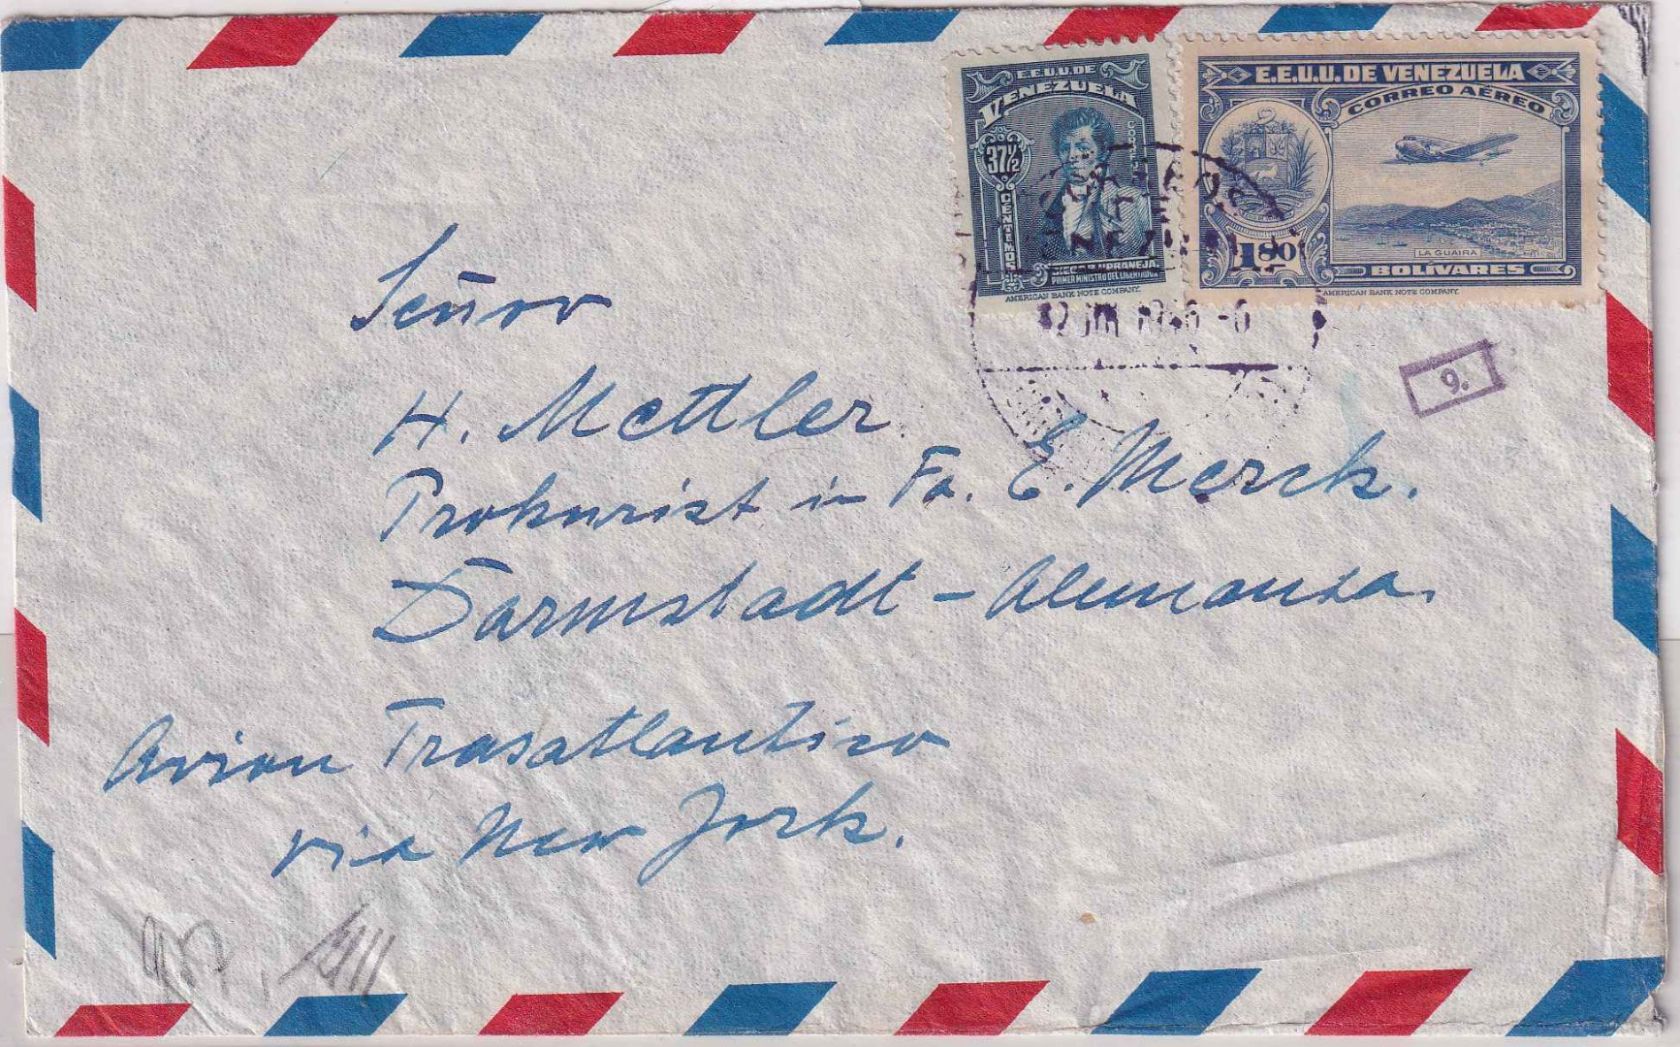 E.E.U.U. DE
VENEZUELA
37½
CENTIMOS
PRIMER MINISTRO DEL LIBERTADOR
AMERICAN BANK NOTE COMPANY.
E.E.U.U. DE VENEZUELA
CORREO AÉREO
LA GUAIRA
1.80
BOLÍVARES
AMERICAN BANK NOTE COMPANY.
9.
Señor
H. Mettler
Prokurist in Fa. E. Merck.
Darmstadt - Alemania.
Avion Trasatlantico
via New York.